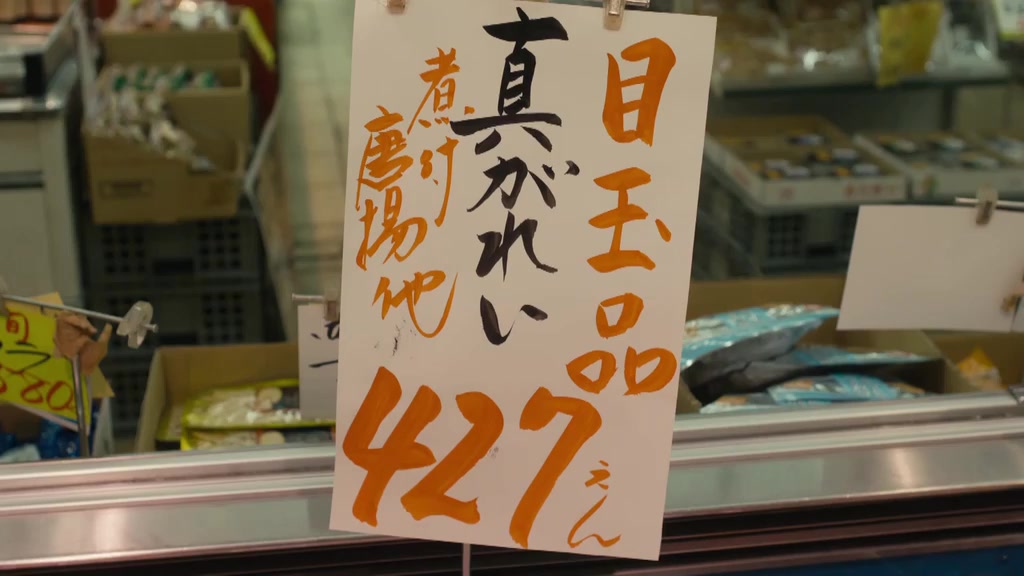 目玉品
真がれい
煮付
唐揚他
427
えん
旬
80